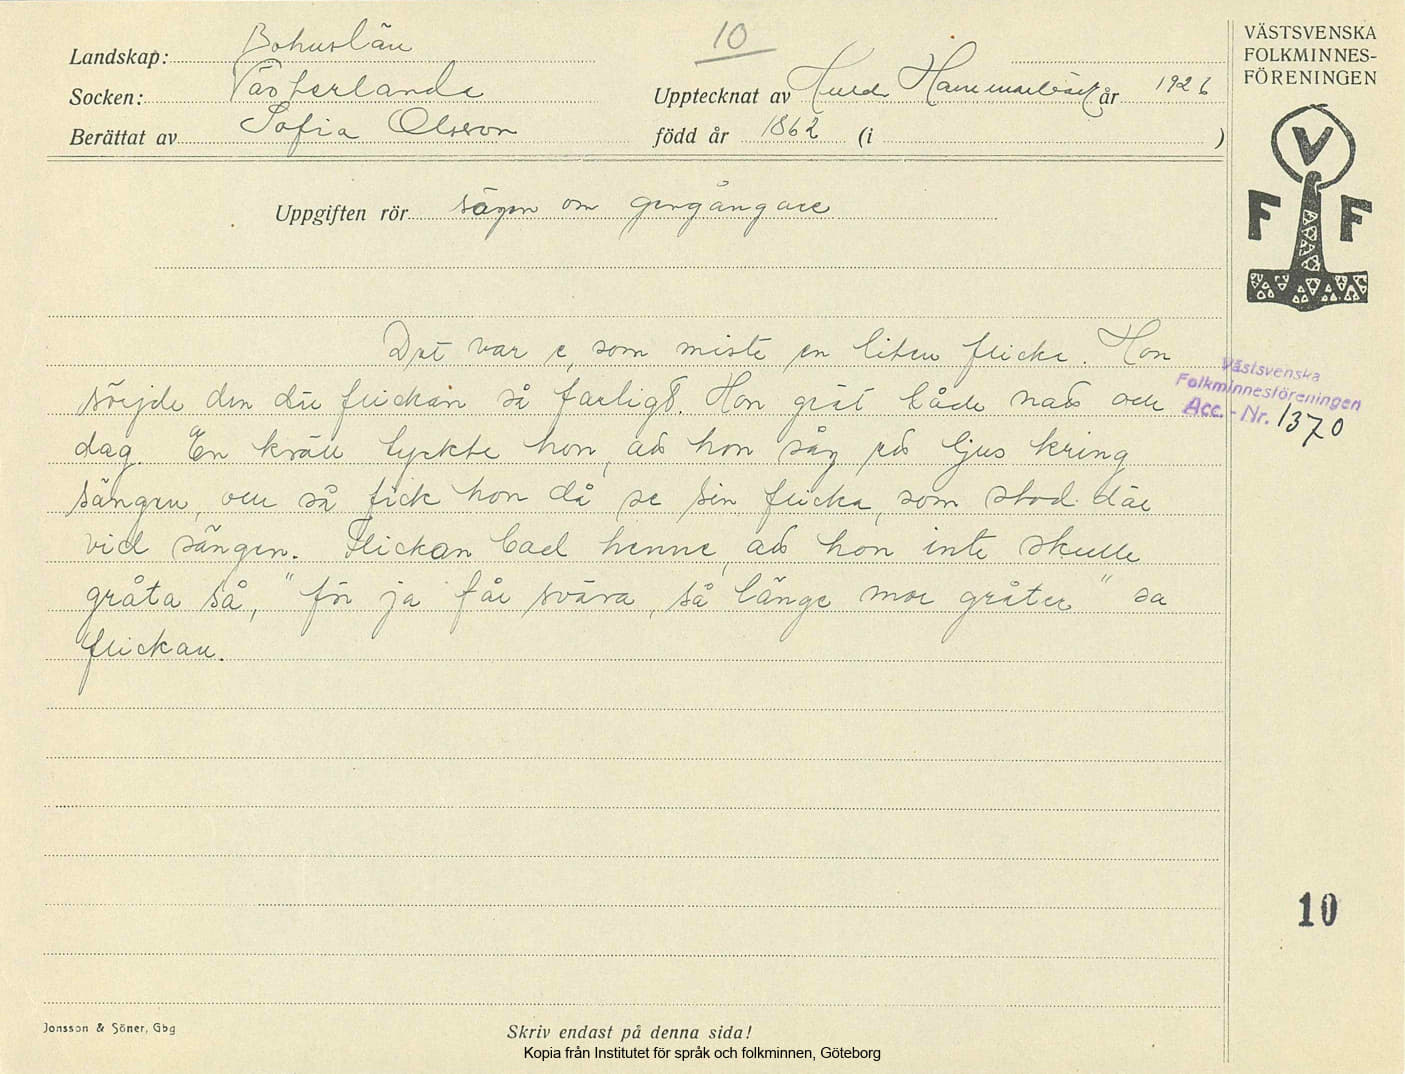 Landskap: Bohuslän
10
VÄSTSVENSKA
FOLKMINNES-
FÖRENINGEN
Socken: Västerlanda
Upptecknat av Hulda Hammarbäck år 1926
Berättat av Sofia Olsson
född år 1862 (i )
V
F F
Uppgiften rör sägen om gengångare
Det var e, som miste en liten flicka. Hon
sörjde den där flickan så farligt. Hon grät både natt och
dag. En kväll tyckte hon, att hon såg ett ljus kring
sängen, och så fick hon då se sin flicka, som stod där
vid sängen. Flickan bad henne, att hon inte skulle
gråta så, "för ja får svåra, så länge mor gråter" sa
flickan.
Västsvenska
Folkminnesföreningen
Acc. - Nr. 1370
10
Jonsson & Söner, Gbg
Skriv endast på denna sida!
Kopia från Institutet för språk och folkminnen, Göteborg